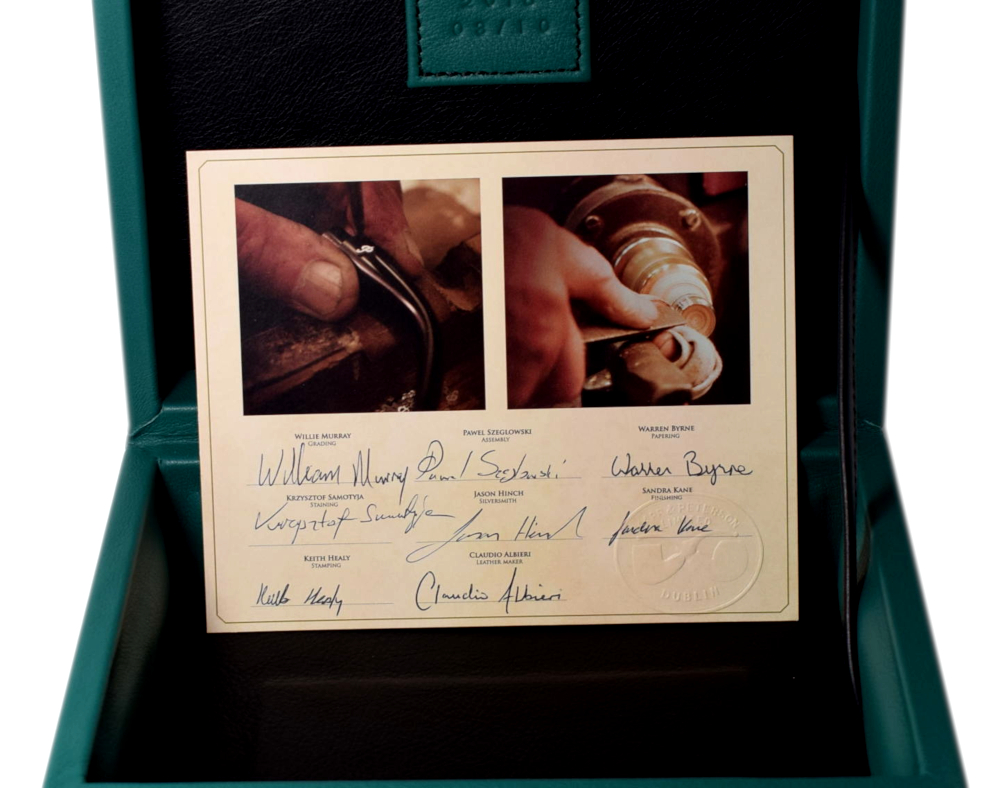 08/10
WILLIE MURRAY
GRADING
PAWEL SZEGLOWSKI
ASSEMBLY
WARREN BYRNE
PAPERING
William Murray
Pawel Szeglowski
Warren Byrne
KRZYSZTOF SAMOTYJA
STAINING
JASON HINCH
SILVERSMITH
SANDRA KANE
FINISHING
Krzysztof Samotyja
Jason Hinch
Sandra Kane
KEITH HEALY
STAMPING
CLAUDIO ALBIERI
LEATHER MAKER
Keith Healy
Claudio Albieri
DUBLIN